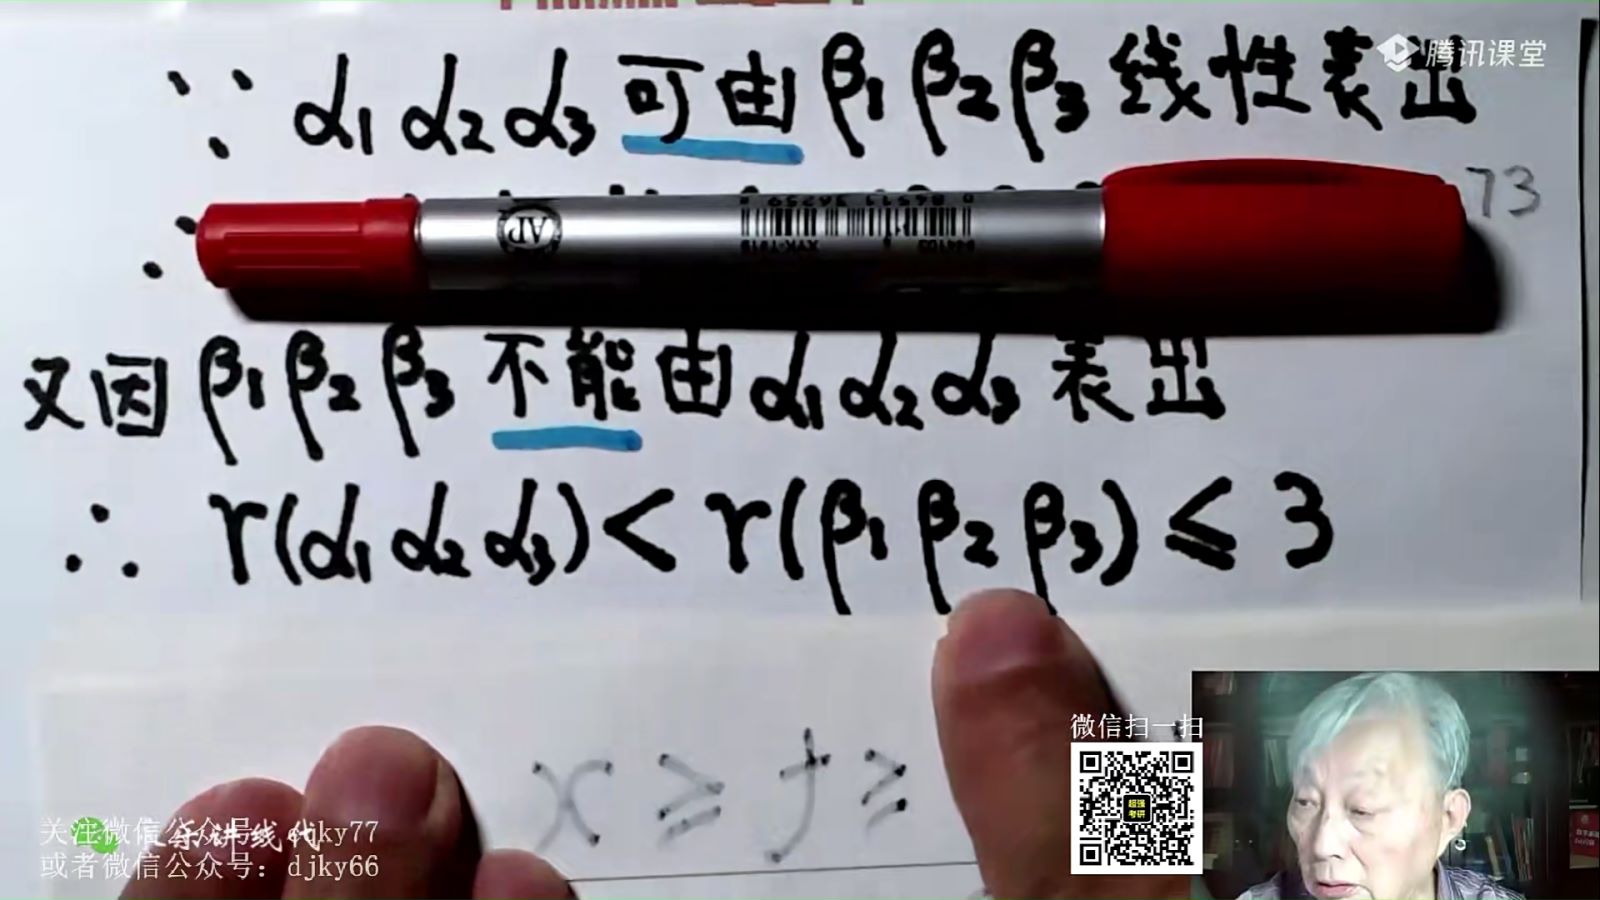 腾讯课堂
∵ α1 α2 α3 可由 β1 β2 β3 线性表出
73
AP
又因 β1 β2 β3 不能由 α1 α2 α3 表出
∴ r(α1 α2 α3) < r(β1 β2 β3) ≤ 3
x ≥ t ≥
微信扫一扫
超强
考研
关注微信公众号：djky77
或者微信公众号：djky66